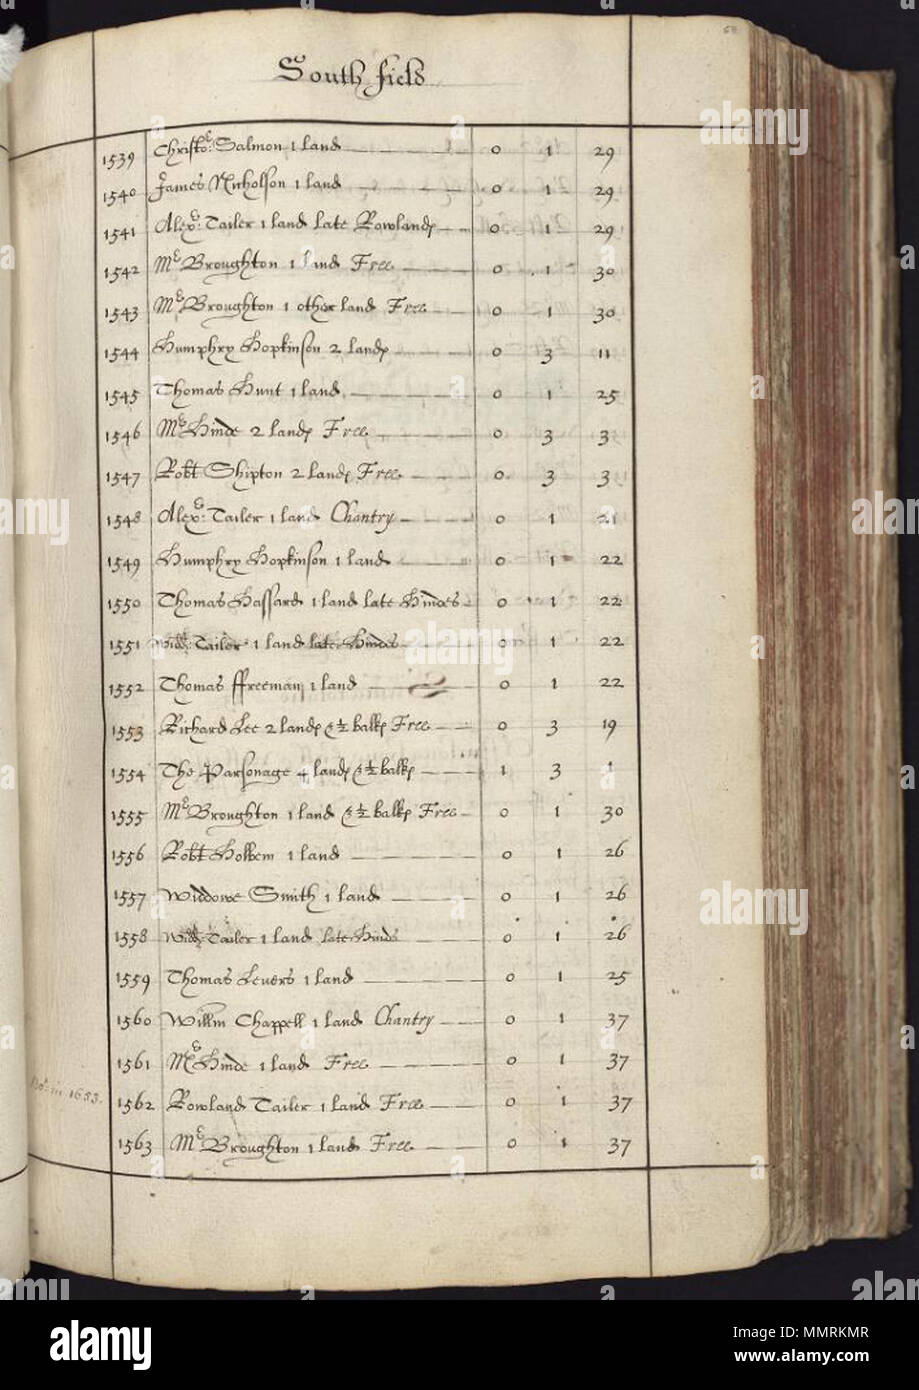 South field
1539 Christo: Salmon 1 land 0 1 29
1540 James Nicholson 1 land 0 1 29
1541 Alexr: Tailer 1 land late Rowlands 0 1 29
1542 Mr Broughton 1 land Free 0 1 30
1543 Mr Broughton 1 other land Free 0 1 30
1544 Humphry Hopkinson 2 lands 0 3 11
1545 Thomas Hunt 1 land 0 1 25
1546 Mr Hinde 2 lands Free 0 3 3
1547 Robt Shipton 2 lands Free 0 3 3
1548 Alexr: Tailer 1 land Chantry 0 1 21
1549 Humphry Hopkinson 1 land 0 1 22
1550 Thomas Hassard 1 land late Hindes 0 1 22
1551 Widd: Tailer 1 land late Hindes 0 1 22
1552 Thomas ffreeman 1 land 0 1 22
1553 Richard Lee 2 lands & ½ balks Free 0 3 19
1554 The Parsonage 4 lands & ½ balks 1 3 1
1555 Mr Broughton 1 land & ½ balks Free 0 1 30
1556 Robt Holbem 1 land 0 1 26
1557 Widdowe Smith 1 land 0 1 26
1558 Widd: Tailer 1 land late Hinds 0 1 26
1559 Thomas Levers 1 land 0 1 25
1560 Willm Chappell 1 land Chantry 0 1 37
1561 Mr Hinde 1 land Free 0 1 37
in 1653. 1562 Rowland Tailer 1 land Free 0 1 37
1563 Mr Broughton 1 land Free 0 1 37
alamy
Image ID: MMRKMR
www.alamy.com